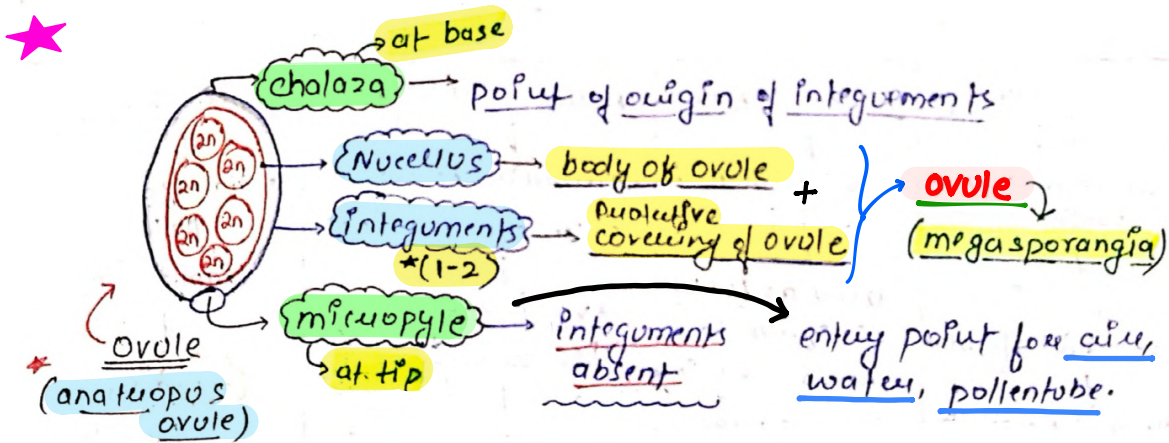 at base
Chalaza → point of origin of integuments
Nucellus → body of ovule
+
integuments → protective
covering of ovule
*(1-2)
ovule
(megasporangia)
micropyle → integuments
absent
at tip
entry point for air,
water, pollentube.
2n
2n
2n
2n
2n
2n
Ovule
(anatropous
ovule)